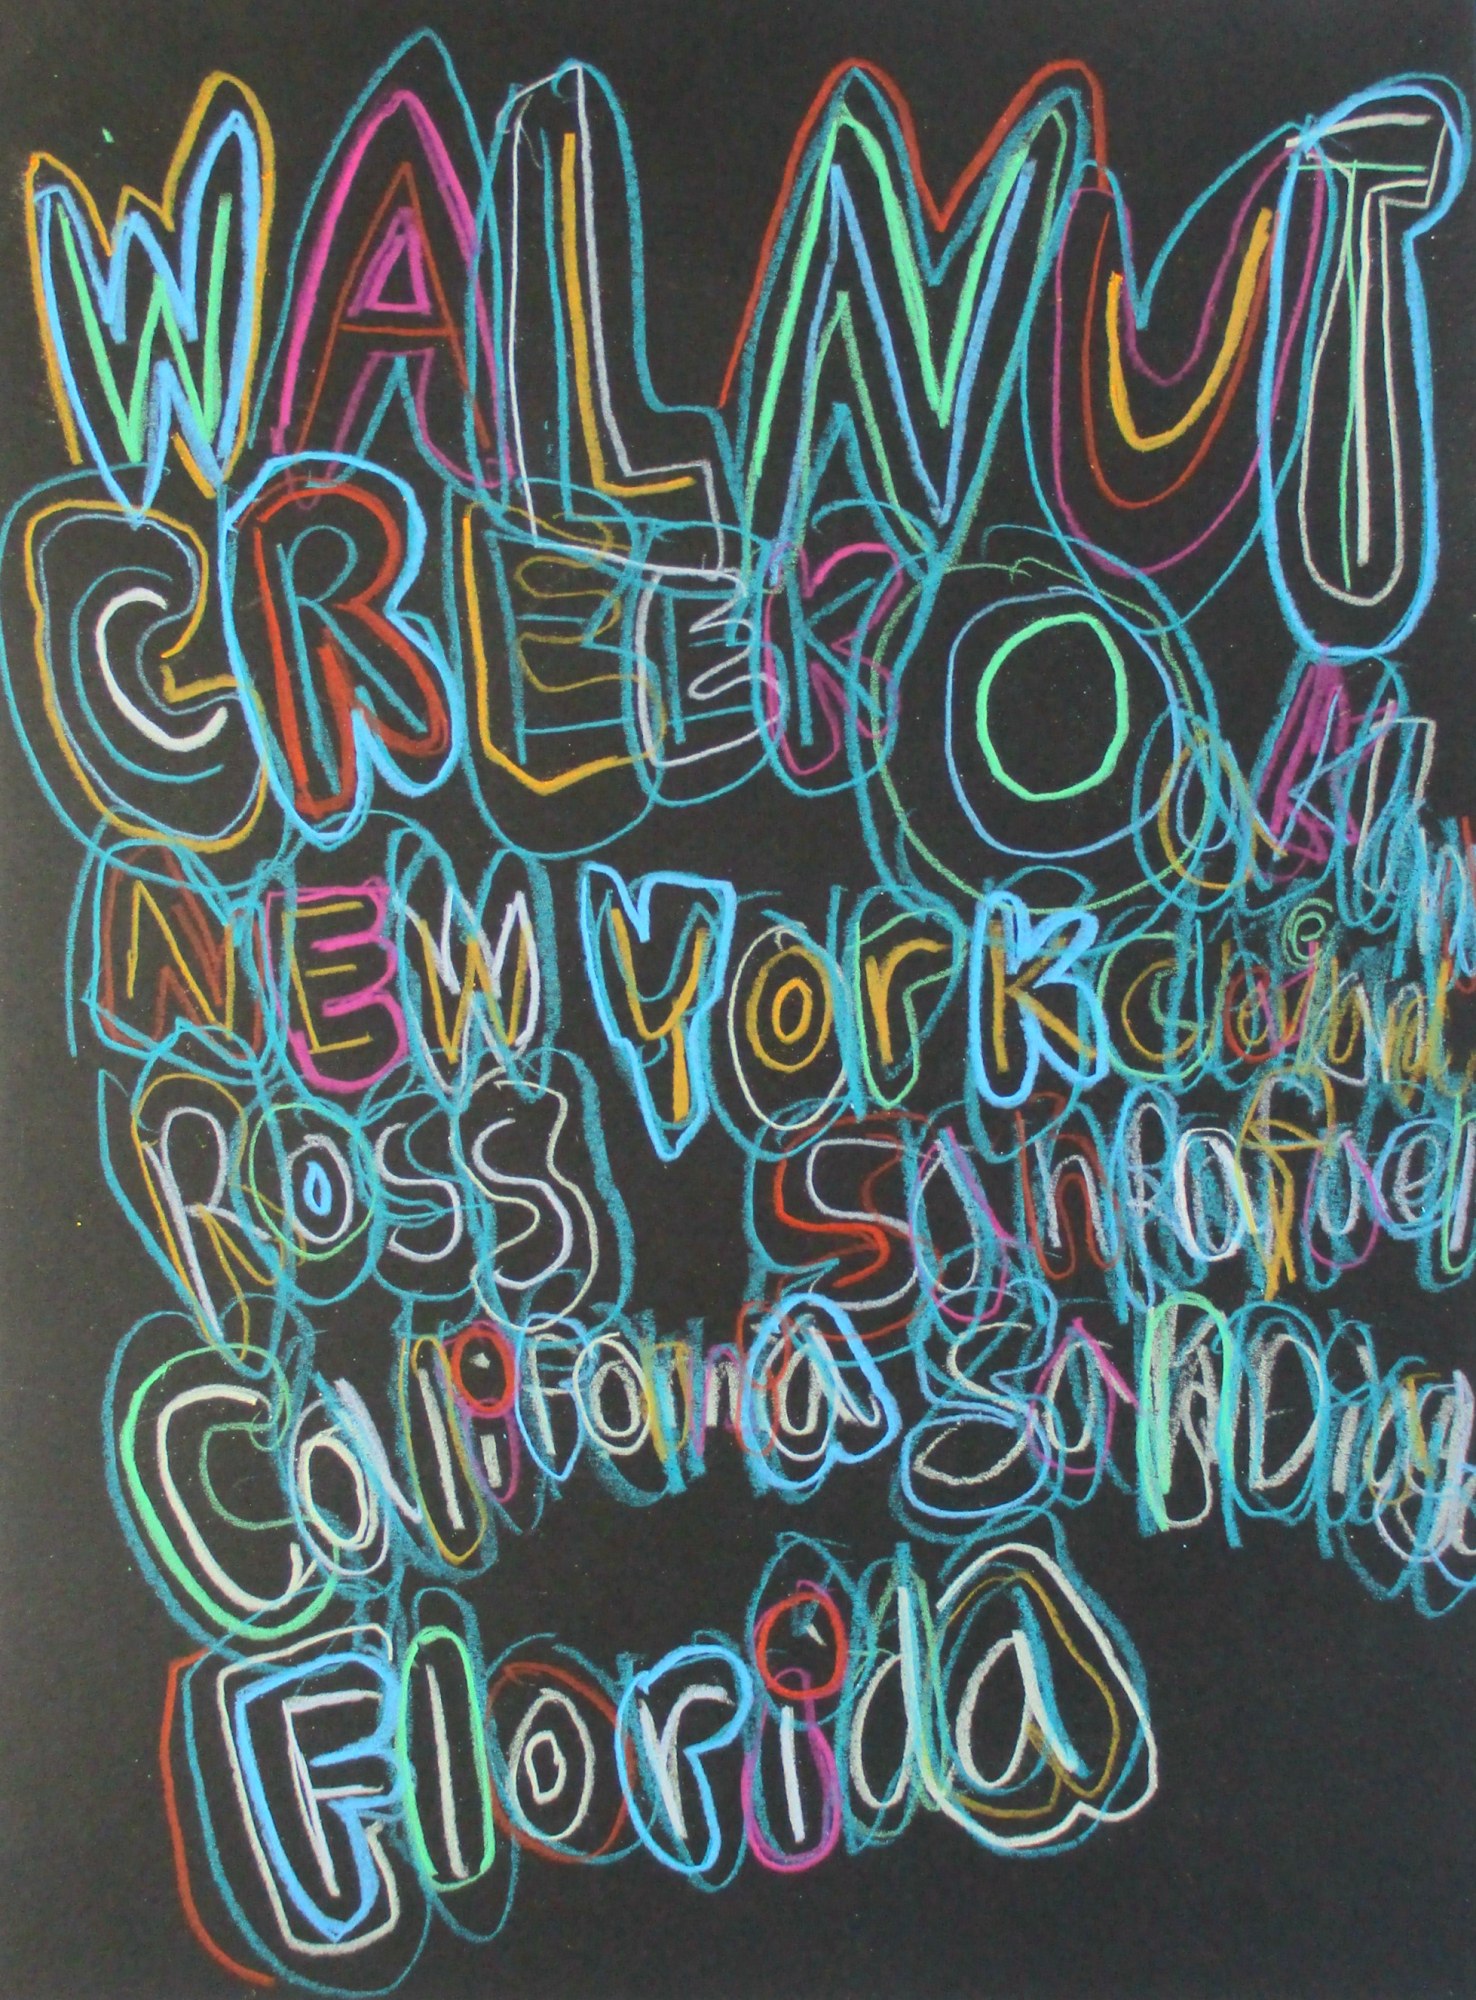 WALNUT
CREEK Oakl
NEW York
Ross San Rafael
California San Diego
Florida